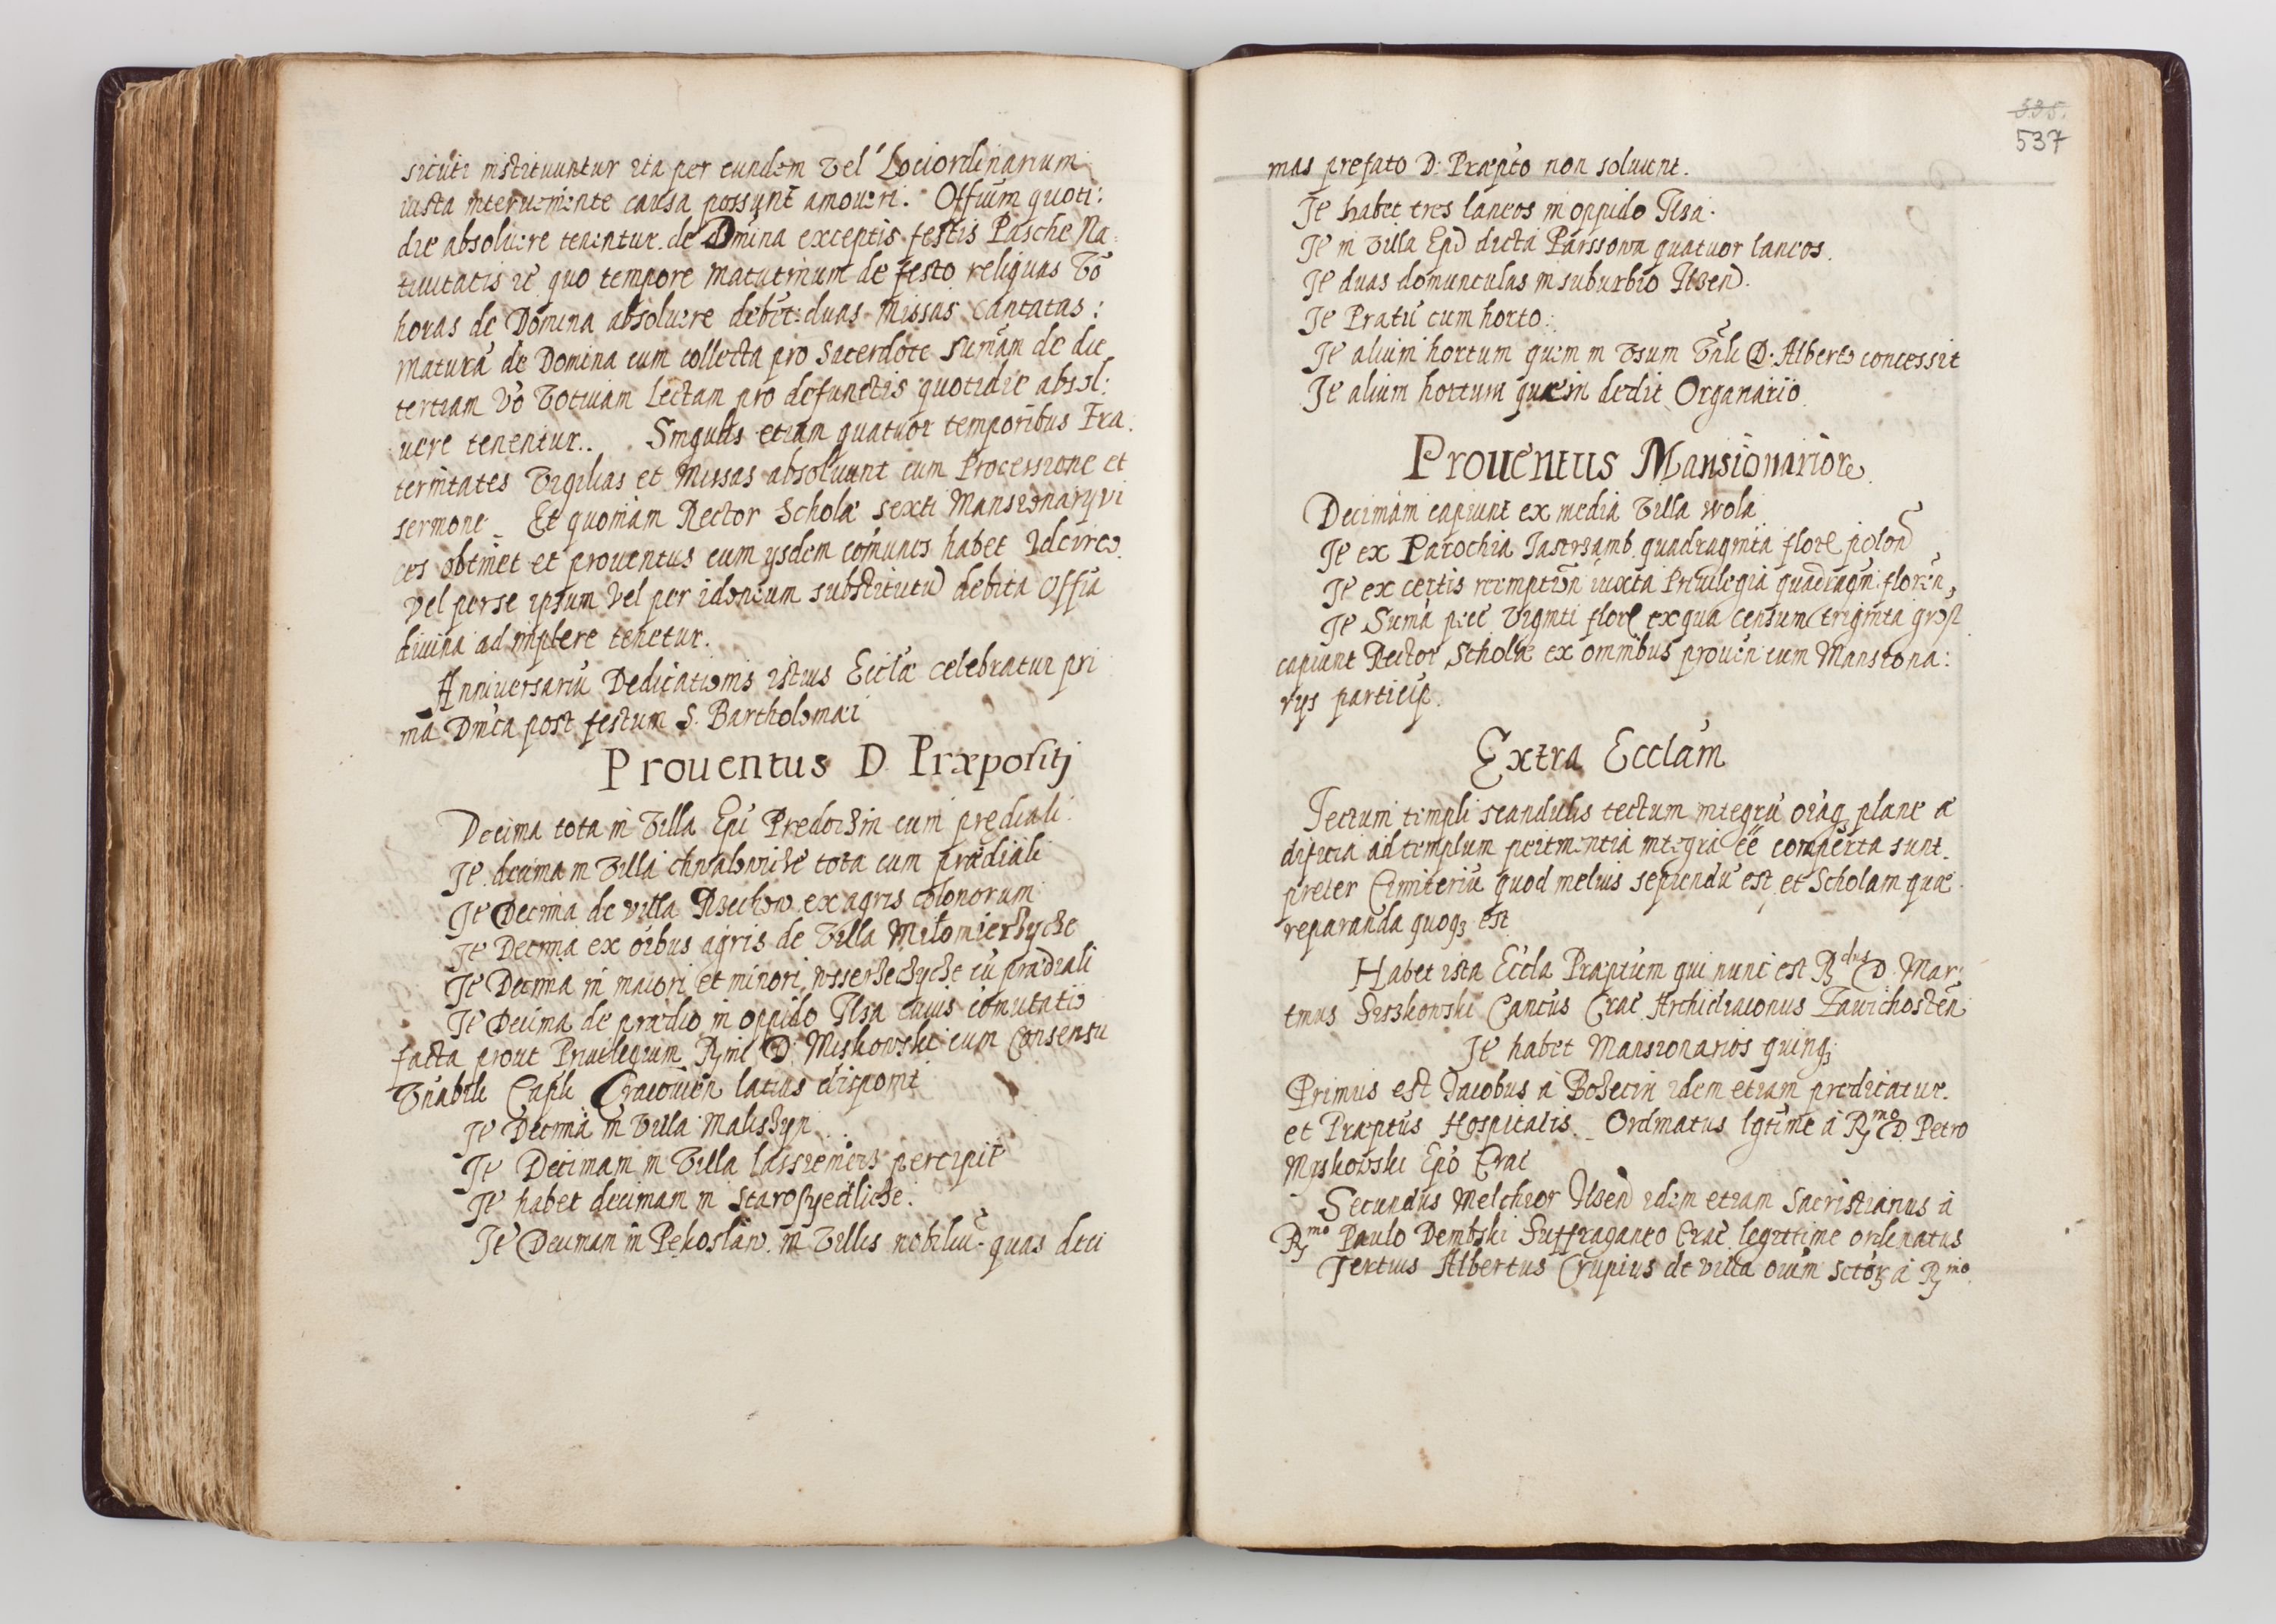 sicuti instituuntur ita per eundem vel Lociordinarium
iusta interueniente causa possunt amoueri. Offium quoti:
die absoluere tenentur de Dmina exceptis festis Pasche Na:
tiuitatis ic quo tempore matutinum de festo reliquas vo
horas de Domina absoluere debet: duas Missas cantatas:
matura de Domina cum collecta pro Sacerdote sumam de die
tertiam vo votiuam lectam pro defunctis quotidie absol:
uere tenentur.. Singulis etiam quatuor temporibus Fra:
ternitates vigilias et Missas absoluunt cum Processione et
sermone _ Et quoniam Rector Scholæ sexti Mansionarij vi
ces obtinet et prouentus cum ysdem comunes habet Idcirco
vel per se ipsum vel per idoneum substitutū debita Offia
diuina ad implere tenetur.
Anniuersariū Dedicationis istius Ecclæ celebratur pri
ma Dnica post festum S. Bartholomæi
Prouentus D. Præpositj
Decima tota in villa Epi Predoczin cum prediali.
Ite decima in villa chwalowicze tota cum prædiali
Ite Decima de villa Rzechow ex agris colonorum
Ite Decima ex oibus agris de villa Miłomierzycze
Ite Decima in maiori et minori wsserzechycze cū prædiali
Ite Decima de prædio in oppido Ilza cuius comutatio
facta prout Priuilegium Rmi D. Miskowski cum Consensu
Vnabili Capli Cracouien latius disponit
Ite Decima in villa Maliszyn
Ite Decimam in villa Lassieniecz percipit
Ite habet decimam in starosyedlicze.
Ite Decimam in Pekoslaw in villis nobiliū quas deci
535.
537
mas prefato D: Præpto non soluunt.
Ite habet tres laneos in oppido Ilza.
Ite in villa Epi dicta Parssowa quatuor laneos.
Ite duas domunculas in suburbio Ilzen.
Ite Pratū cum horto.
Ite alium hortum quem in vsum Vnli D. Alberto concessit
Ite alium hortum quem dedit Organario
Prouentus Mansionarior
Decimam capiunt ex media villa wola
Ite ex Parochia Jastrzamb quadraginta flore polon
Ite ex certis reemption iuxta Priuilegia quadragin floren,
Ite Suma pec viginti flore ex qua censum triginta gross
capiunt Rector Scholæ ex omnibus prouen cum Mansiona:
rijs particip.
Extra Ecclam
Tectum templi scandulis tectum integrū oiaq plane æ
dificia ad templum pertinentia integra eē comperta sunt.
preter Cimiteriū quod melius sepiendū est et Scholam quæ
reparanda quoq est
Habet ista Eccla Præptum qui nunc est Rdus D. Mar:
tinus Siszkowski Cancus Crac Archidiaconus Zawichosten
Ite habet Mansionarios quinq
Primus est Jacobus a Bozecin idem etiam predicatur.
et Præptus Hospitalis. Ordinatus lgtime a Rmo D. Petro
Miskowski Epo Crac
Secundus Melchior Ilzen idem etiam Sacristianus a
Rmo Paulo Dembski Suffraganeo Crac legittime ordinatus
Tertius Albertus Crupius de villa oium sctor a Rmo